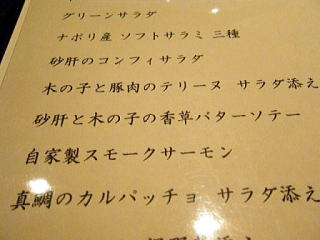 グリーンサラダ
ナポリ産 ソフトサラミ 三種
砂肝のコンフィサラダ
木の子と豚肉のテリーヌ サラダ添え
砂肝と木の子の香草バターソテー
自家製スモークサーモン
真鯛のカルパッチョ サラダ添え